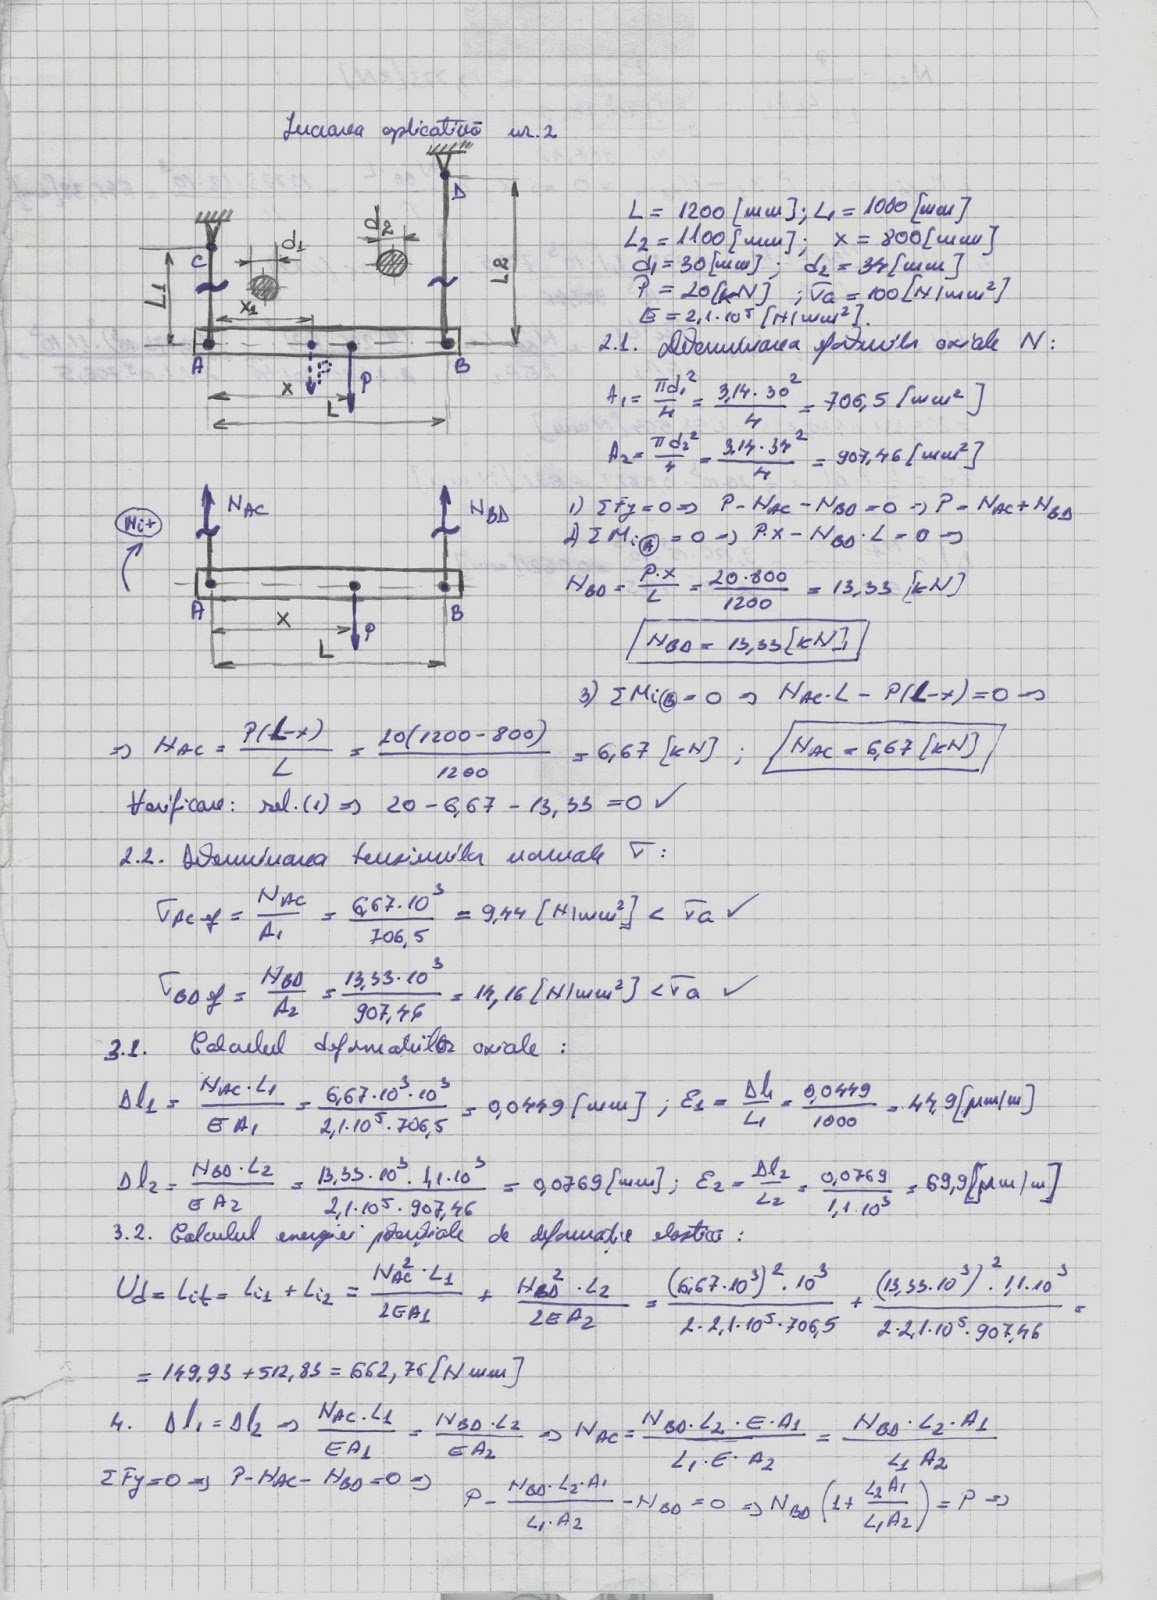 Lucrarea aplicativă nr. 2
D
C
d1
d2
L1
L2
x1
A
B
P
P
x
L
L = 1200 [mm]; L1 = 1000 [mm]
L2 = 1100 [mm]; x = 800 [mm]
d1 = 30 [mm]; d2 = 34 [mm]
P = 20 [kN]; σa = 100 [N/mm²]
E = 2,1·10⁵ [N/mm²].
2.1. Determinarea forțelor axiale N:
A1 = πd1²/4 = 3,14·30²/4 = 706,5 [mm²]
A2 = πd2²/4 = 3,14·34²/4 = 907,46 [mm²]
Mi+
NAC
NBD
A
B
x
P
L
1) ΣFy = 0 => P - NAC - NBD = 0 => P = NAC + NBD
2) ΣMi(A) = 0 => P·x - NBD·L = 0 =>
NBD = P·x/L = 20·800/1200 = 13,33 [kN]
NBD = 13,33 [kN]
3) ΣMi(B) = 0 => NAC·L - P(L-x) = 0 =>
=> NAC = P(L-x)/L = 20(1200-800)/1200 = 6,67 [kN]; NAC = 6,67 [kN]
Verificare: rel. (1) => 20 - 6,67 - 13,33 = 0 ✓
2.2. Determinarea tensiunilor normale σ:
σAC ef = NAC/A1 = 6,67·10³/706,5 = 9,44 [N/mm²] < σa ✓
σBD ef = NBD/A2 = 13,33·10³/907,46 = 14,16 [N/mm²] < σa ✓
3.1. Calculul deformațiilor axiale:
Δl1 = NAC·L1/EA1 = 6,67·10³·10³/2,1·10⁵·706,5 = 0,0449 [mm]; ε1 = Δl1/L1 = 0,0449/1000 = 44,9 [μm/m]
Δl2 = NBD·L2/EA2 = 13,33·10³·1,1·10³/2,1·10⁵·907,46 = 0,0769 [mm]; ε2 = Δl2/L2 = 0,0769/1,1·10³ = 69,9 [μm/m]
3.2. Calculul energiei potențiale de deformație elastică:
Ud = Lit = Li1 + Li2 = NAC²·L1/2EA1 + NBD²·L2/2EA2 = (6,67·10³)²·10³/2·2,1·10⁵·706,5 + (13,33·10³)²·1,1·10³/2·2,1·10⁵·907,46 =
= 149,93 + 512,83 = 662,76 [Nmm]
4. Δl1 = Δl2 => NAC·L1/EA1 = NBD·L2/EA2 => NAC = NBD·L2·E·A1/L1·E·A2 = NBD·L2·A1/L1A2
ΣFy = 0 => P - NAC - NBD = 0 => P - NBD·L2·A1/L1·A2 - NBD = 0 => NBD (1 + L2A1/L1A2) = P =>